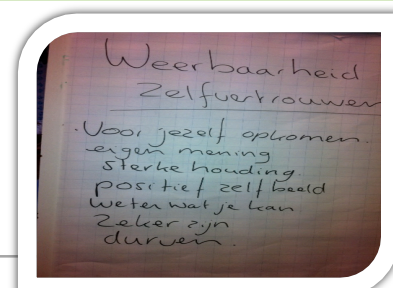 Weerbaarheid
Zelfvertrouwen
. Voor jezelf opkomen.
eigen mening
sterke houding
positief zelfbeeld
weten wat je kan
Zeker zijn
durven.